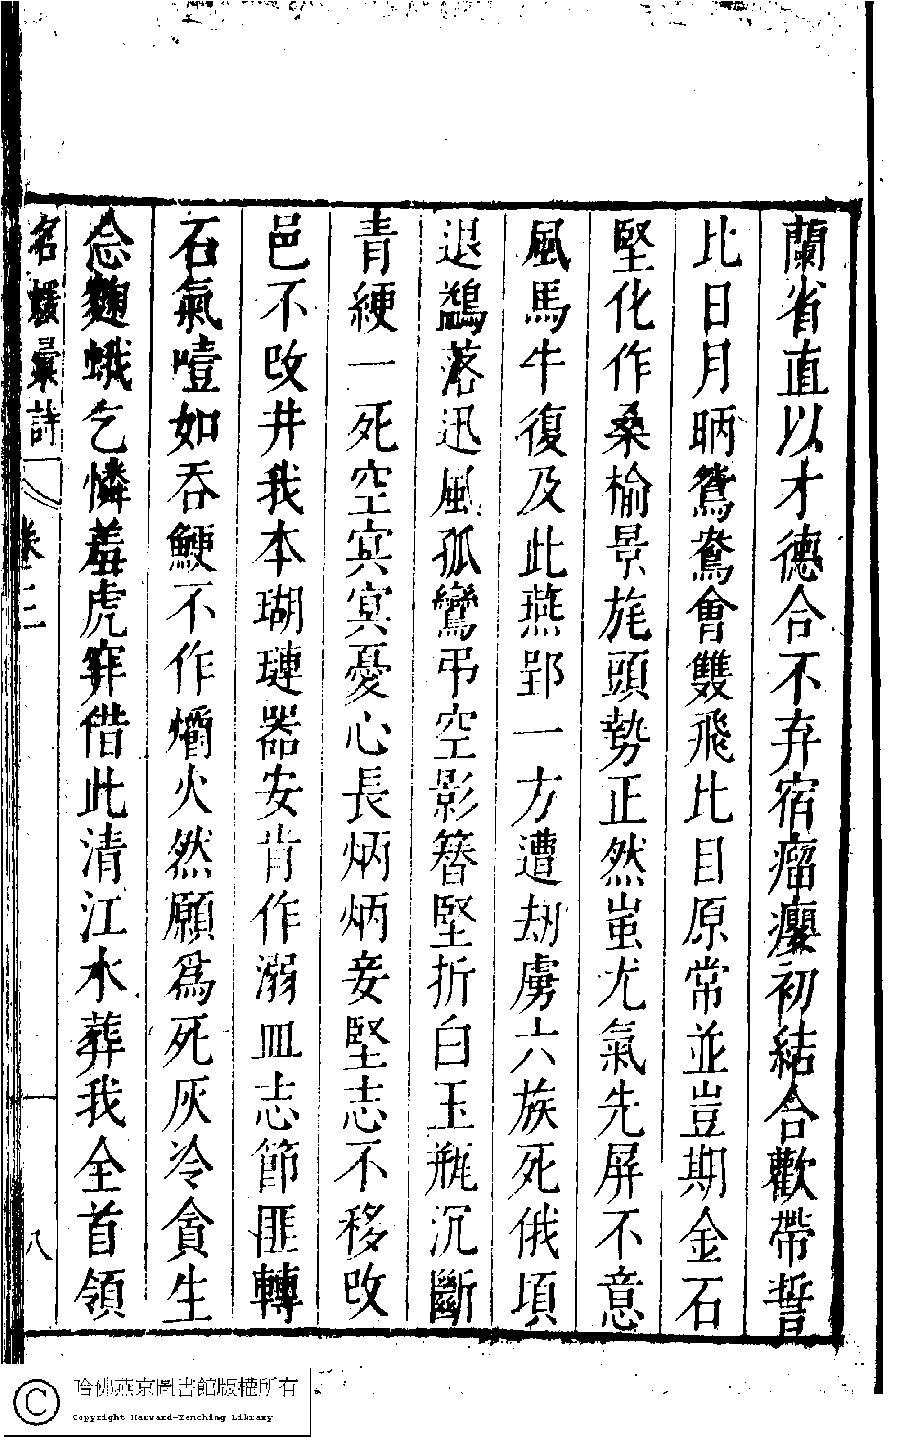 蘭省直以才德合不弃宿瘤癭初結合歡帶誓
比日月昞鴛鴦會雙飛比目原常並豈期金石
堅化作桑榆景旄頭勢正然蚩尤氣先屏不意
風馬牛復及此燕郢一方遭刼虜六族死俄頃
退鷁落迅風孤鸞弔空影簪堅折白玉瓶沉斷
青綆一死空㝠㝠憂心長炳炳妾堅志不移改
邑不改井我本瑚璉器安肯作溺皿志節匪轉
石氣噎如吞鯁不作爝火然願爲死灰冷貪生
念麴蛾乞憐羞虎穽借此清江水葬我全首領
名媛彙詩 卷三 八
哈佛燕京圖書館版權所有
Copyright Harvard-Yenching Library